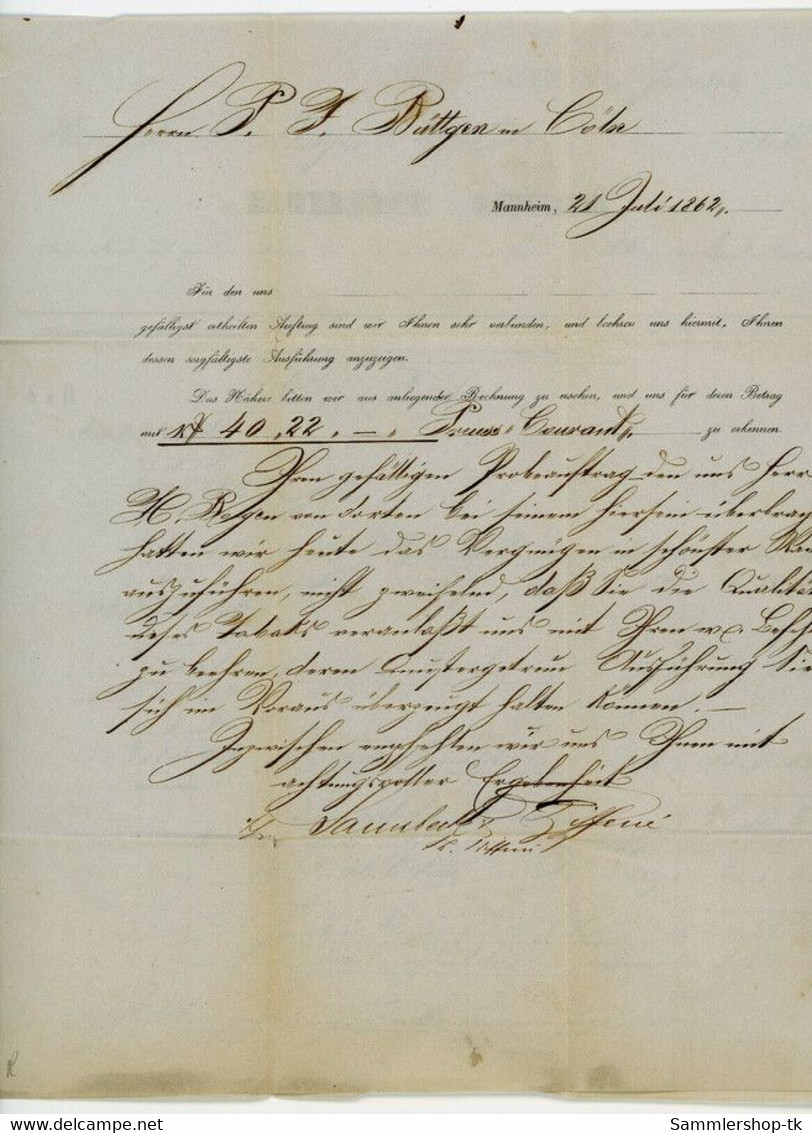 Herrn P. J. Büttgen in Cöln
Mannheim, 21 Juli 1862.
Für den uns
gefälligst ertheilten Auftrag sind wir Ihnen sehr verbunden, und beehren uns hiermit, Ihnen
dessen sorgfältigste Ausführung anzuzeigen.
Das Nähere bitten wir aus anliegender Rechnung zu ersehen, und uns für deren Betrag
mit 40, 22, — Preuss. Courant zu erkennen.
Ihren gefälligen Probeauftrag den uns Herr
von dorten bei seinem Hiersein übertrag
hatten wir heute das Vergnügen in schönster
auszuführen, nicht zweifelnd, daß Sie die Qualität
dieses Tabaks veranlaßt uns mit Ihren
zu beehren, deren mustergetreue Ausführung Sie
sich im Voraus überzeugt halten können. —
Inzwischen empfehlen wir uns Ihnen mit
achtungsvoller Ergebenheit
Sammlershop-tk